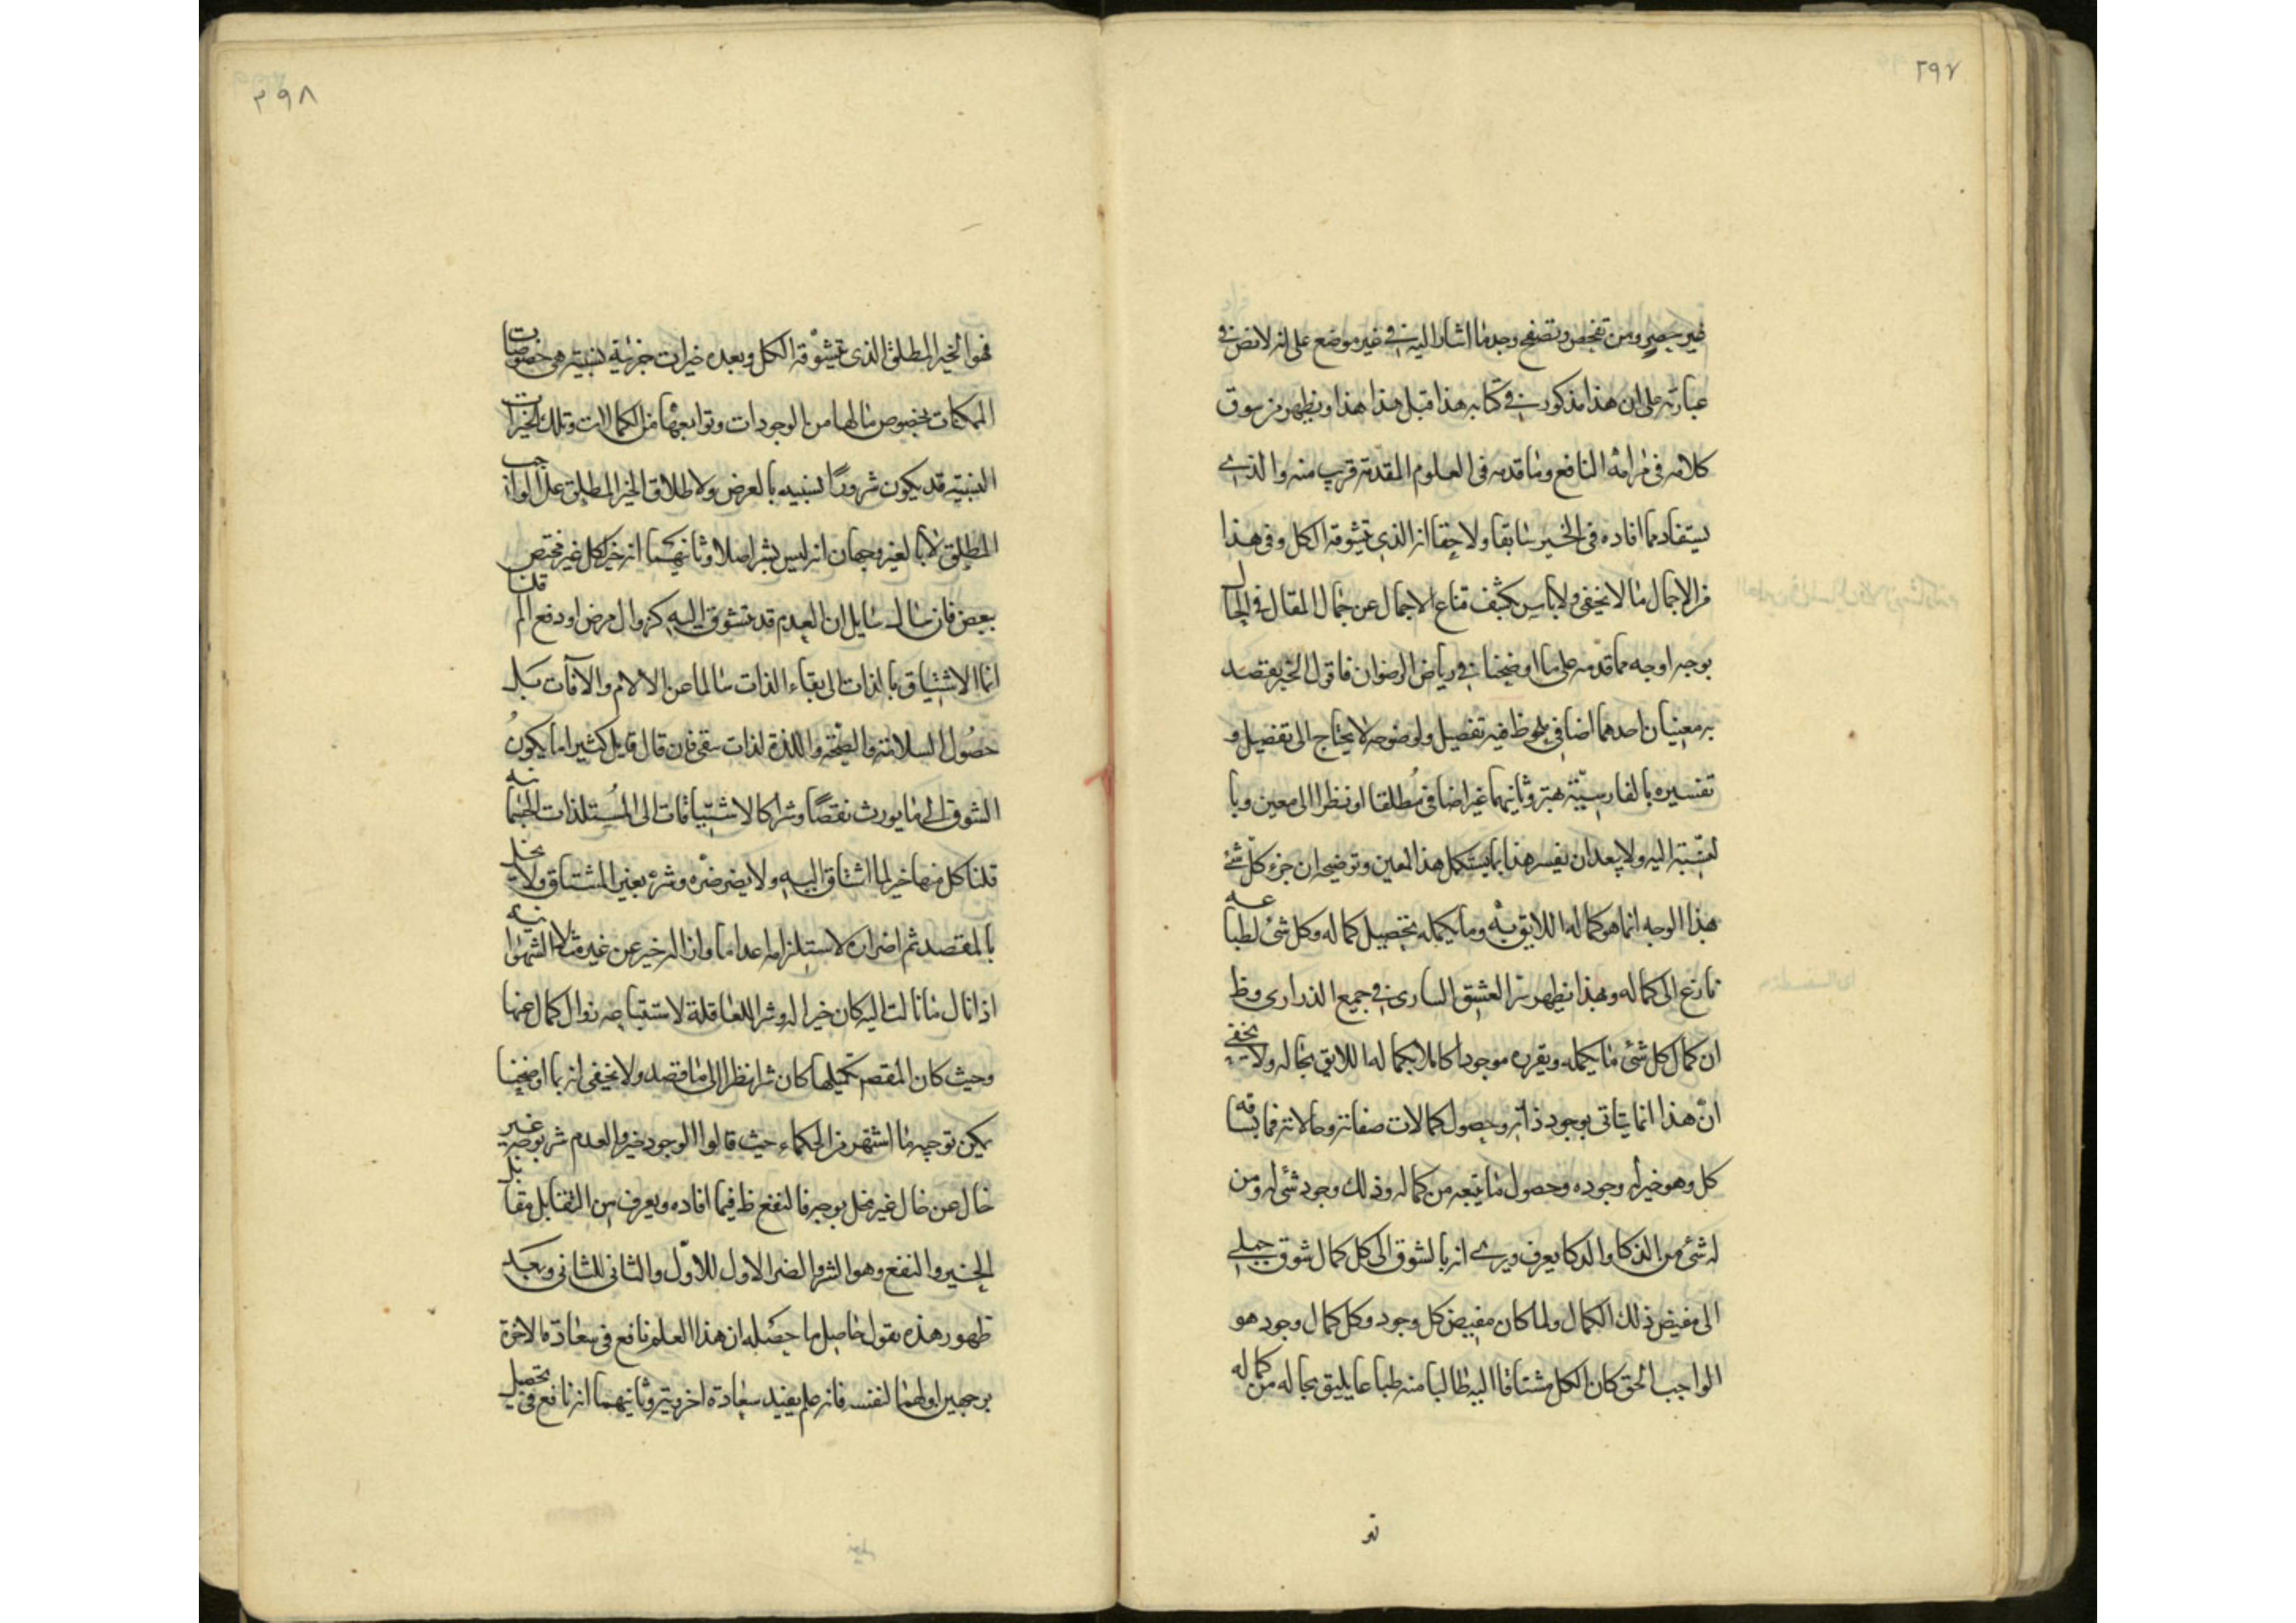 ٢٩٧
غير حصر ومن تفحص وتصفح وجد ما اشار اليه في غير موضع على انه لا نص في
عبارته على ان هذا مذكور في كتابه هذا قبل هذا هذا ويظهر من سوق
كلامه في مرامه النافع وما قدمه في العلوم المقدمة قريب منه والذي
يستفاد مما افاده في الخير سابقا ولاحقا انه الذي يتشوقه الكل وفي هذا
من الاجمال ما لا يخفى ولا باس بكشف قناع الاجمال عن جمال المقال في الحال
بوجه اوجه مما قدمه على ما اوضحنا في رياض الرضوان فاقول الخير يقصد
به معنيان احدهما اضافي يلحوظ فيه تفضيل ولوضوحه لا يحتاج الى تفصيل و
تفسيره بالفارسية بهتر وثانيهما غير اضافي مطلقا او نظرا الى معين وبا
لنسبة اليه ولا يبعد ان يفسر هذا بما يستكمل هذا المعين وتوضيحه ان خير كل شئ
بهذا الوجه انما هو كماله اللائق به وما يكمله بتحصيل كماله وكل شئ لطباعه
نازع الى كماله وبهذا يظهر سر العشق الساري في جميع الذراري وظ
ان كمال كل شئ ما يكمله ويقرره موجودا كاملا بكماله اللايق بحاله ولا يخفى
ان هذا انما يتاتى بوجود ذاته وحصول كمالات صفاته وحالاته فما يشتاقه
كل وهو خير له وجوده وحصول ما يتبعه من كماله وذلك وجود شئ له ومن
له شئ من الذكا والدكا يعرف ويرى انه بالشوق الى كل كمال شوق جبلي
الى مفيض ذلك الكمال ولما كان مفيض كل وجود وكل كمال وجود هو
الواجب الحق كان الكل مشتاقا اليه طالبا منه طباعا يليق بحاله من كماله
٢٩٨
فهو الخير المطلق الذي يتشوقه الكل وبعده خيرات جزئية نسبية هي خصوصيات
الممكنات بخصوص ما لها من الوجودات وتوابعها من الكمالات وتلك الخيرات
النسبية قد يكون شرورا نسبية بالعرض ولاطلاق الخير المطلق على الواجب
المطلق لا بالغير وجهان انه ليس بشر اصلا وثانيهما انه خير لكل غير مختص
ببعض فان سال سايل ان العدم قد يتشوق اليه كزوال مرض او دفع الم قلنا
انما الاشتياق بالذات الى بقاء الذات سالما عن الالام والآفات بل
حصول السلامة والصحة واللذة لذات يبقى فان قال قايل كثيرا ما يكون
الشوق الى ما يورث نقصا وشرا كالاشتياقات الى المستلذات الجسمانية
قلنا كل منها خير لما اشتاق اليه ولا يضر ضره وشره بغير المشتاق ولا يخل
بالمقصد ثم اضراره لاستلزامه اعداما وازالة خير عن غيره مثلا الشهوانية
اذا نال ما نالت اليه كان خيرا له وشرا للعاقلة لاستتباعه زوال كمال عنها
وحيث كان المقصد تكميلها كان شرا نظرا الى ما قصد ولا يخفى انه بما اوضحنا
يمكن توجيه ما اشتهر من الحكماء حيث قالوا الوجود خير والعدم شر بوجه غير
خال عن خال غير مخل بوجه فالنفع ظ فيما افاده ويعرف من التقابل مقابل
الخير والنفع وهو الشر والضر الاول للاول والثاني للثاني وبعد
ظهور هذه يقول حاصل ما حصله ان هذا العلم نافع في سعادة ما لاخرة
بوجهين اولهما لنفسه فانه علم يفيد سعادة اخروية وثانيهما انه نافع في تحصيل